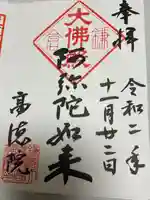 奉拝
令和二年
十一月廿二日
大佛
鎌倉
阿弥陀如来
高徳院